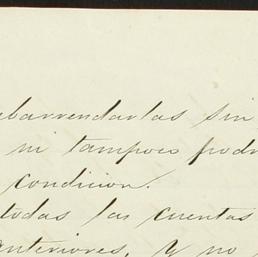 abarrendarlas sin
ni tampoco podr
condicion.
todas las cuentas
anteriores, y no